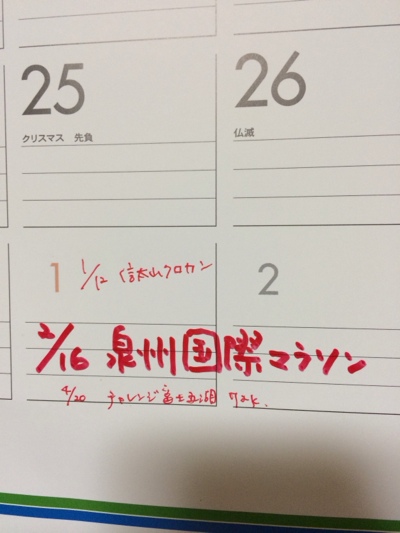 25
26
クリスマス 先負
仏滅
1
1/12 信太山クロカン
2
2/16 泉州国際マラソン
4/20 チャレンジ富士五湖 72k.